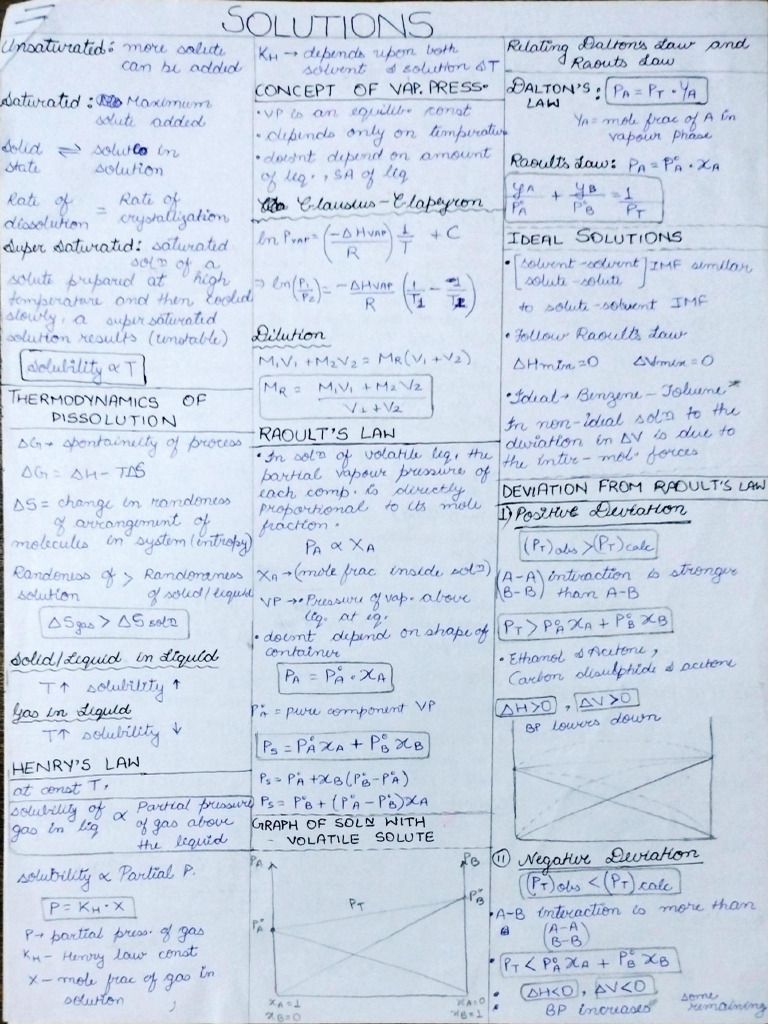 SOLUTIONS
Unsaturated: more solute
can be added
Saturated: Maximum
solute added
Solid ⇌ solute in
state solution
Rate of = Rate of
dissolution crystallization
Super Saturated: saturated
solⁿ of a
solute prepared at high
temperature and then cooled
slowly, a super saturated
solution results (unstable)
Solubility ∝ T
THERMODYNAMICS OF
DISSOLUTION
ΔG → spontaineity of process
ΔG = ΔH - TΔS
ΔS = change in randoness
of arrangement of
molecules in system (entropy)
Randoness of > Randonness
solution of solid/liquid
ΔSgas > ΔSsolⁿ
Solid/Liquid in Liquid
T↑ solubility ↑
Gas in Liquid
T↑ solubility ↓
HENRY'S LAW
at const T,
solubility of ∝ Partial pressure
gas in liq of gas above
the liquid
solubility ∝ Partial P.
P = KH · X
P → partial press. of gas
KH - Henry law const
X - mole frac of gas in
solution
KH → depends upon both
solvent & solution & T
CONCEPT OF VAP. PRESS.
• VP is an equilib. const
• depends only on temperature
• doesnt depend on amount
of liq., SA of liq
Clausius-Clapeyron
ln PVAP = (-ΔHVAP/R) 1/T + C
⇒ ln(P1/P2) = -ΔHVAP/R (1/T1 - 1/T2)
Dilution
M1V1 + M2V2 = MR(V1 + V2)
MR = M1V1 + M2V2 / V1 + V2
RAOULT'S LAW
• In solⁿ of volatile liq. the
partial vapour pressure of
each comp. is directly
proportional to its mole
fraction.
PA ∝ XA
XA → (mole frac inside solⁿ)
VP → Pressure of vap. above
liq. at eq.
• doesnt depend on shape of
container
PA = P°A · XA
P°A = pure component VP
PS = P°A XA + P°B XB
PS = P°A + XB (P°B - P°A)
PS = P°B + (P°A - P°B) XA
GRAPH OF SOLN WITH
- VOLATILE SOLUTE
PA PB
PT
P°A P°B
XA=1 XA=0
XB=0 XB=1
Relating Dalton's Law and
Raouts Law
DALTON'S : PA = PT · YA
LAW
YA = mole frac of A in
vapour phase
Raoult's Law: PA = P°A · XA
YA/P°A + YB/P°B = 1/PT
IDEAL SOLUTIONS
• [solvent-solvent] IMF similar
solute-solute
to solute-solvent IMF
• Follow Raoult's Law
ΔHmix = 0 ΔVmix = 0
• Ideal → Benzene - Toluene*
In non-ideal solⁿ to the
deviation in ΔV is due to
the inter-mol. forces
DEVIATION FROM RAOULT'S LAW
I) Positive Deviation
(PT)obs > (PT)calc
(A-A) interaction is stronger
(B-B) than A-B
PT > P°A XA + P°B XB
• Ethanol & Acetone,
Carbon disulphide & acetone
ΔH>0 , ΔV>0
BP lowers down
II Negative Deviation
(PT)obs < (PT)calc
• A-B interaction is more than
(A-A)
(B-B)
• PT < P°A XA + P°B XB
• ΔH<0 , ΔV<0
BP increases some
remaining